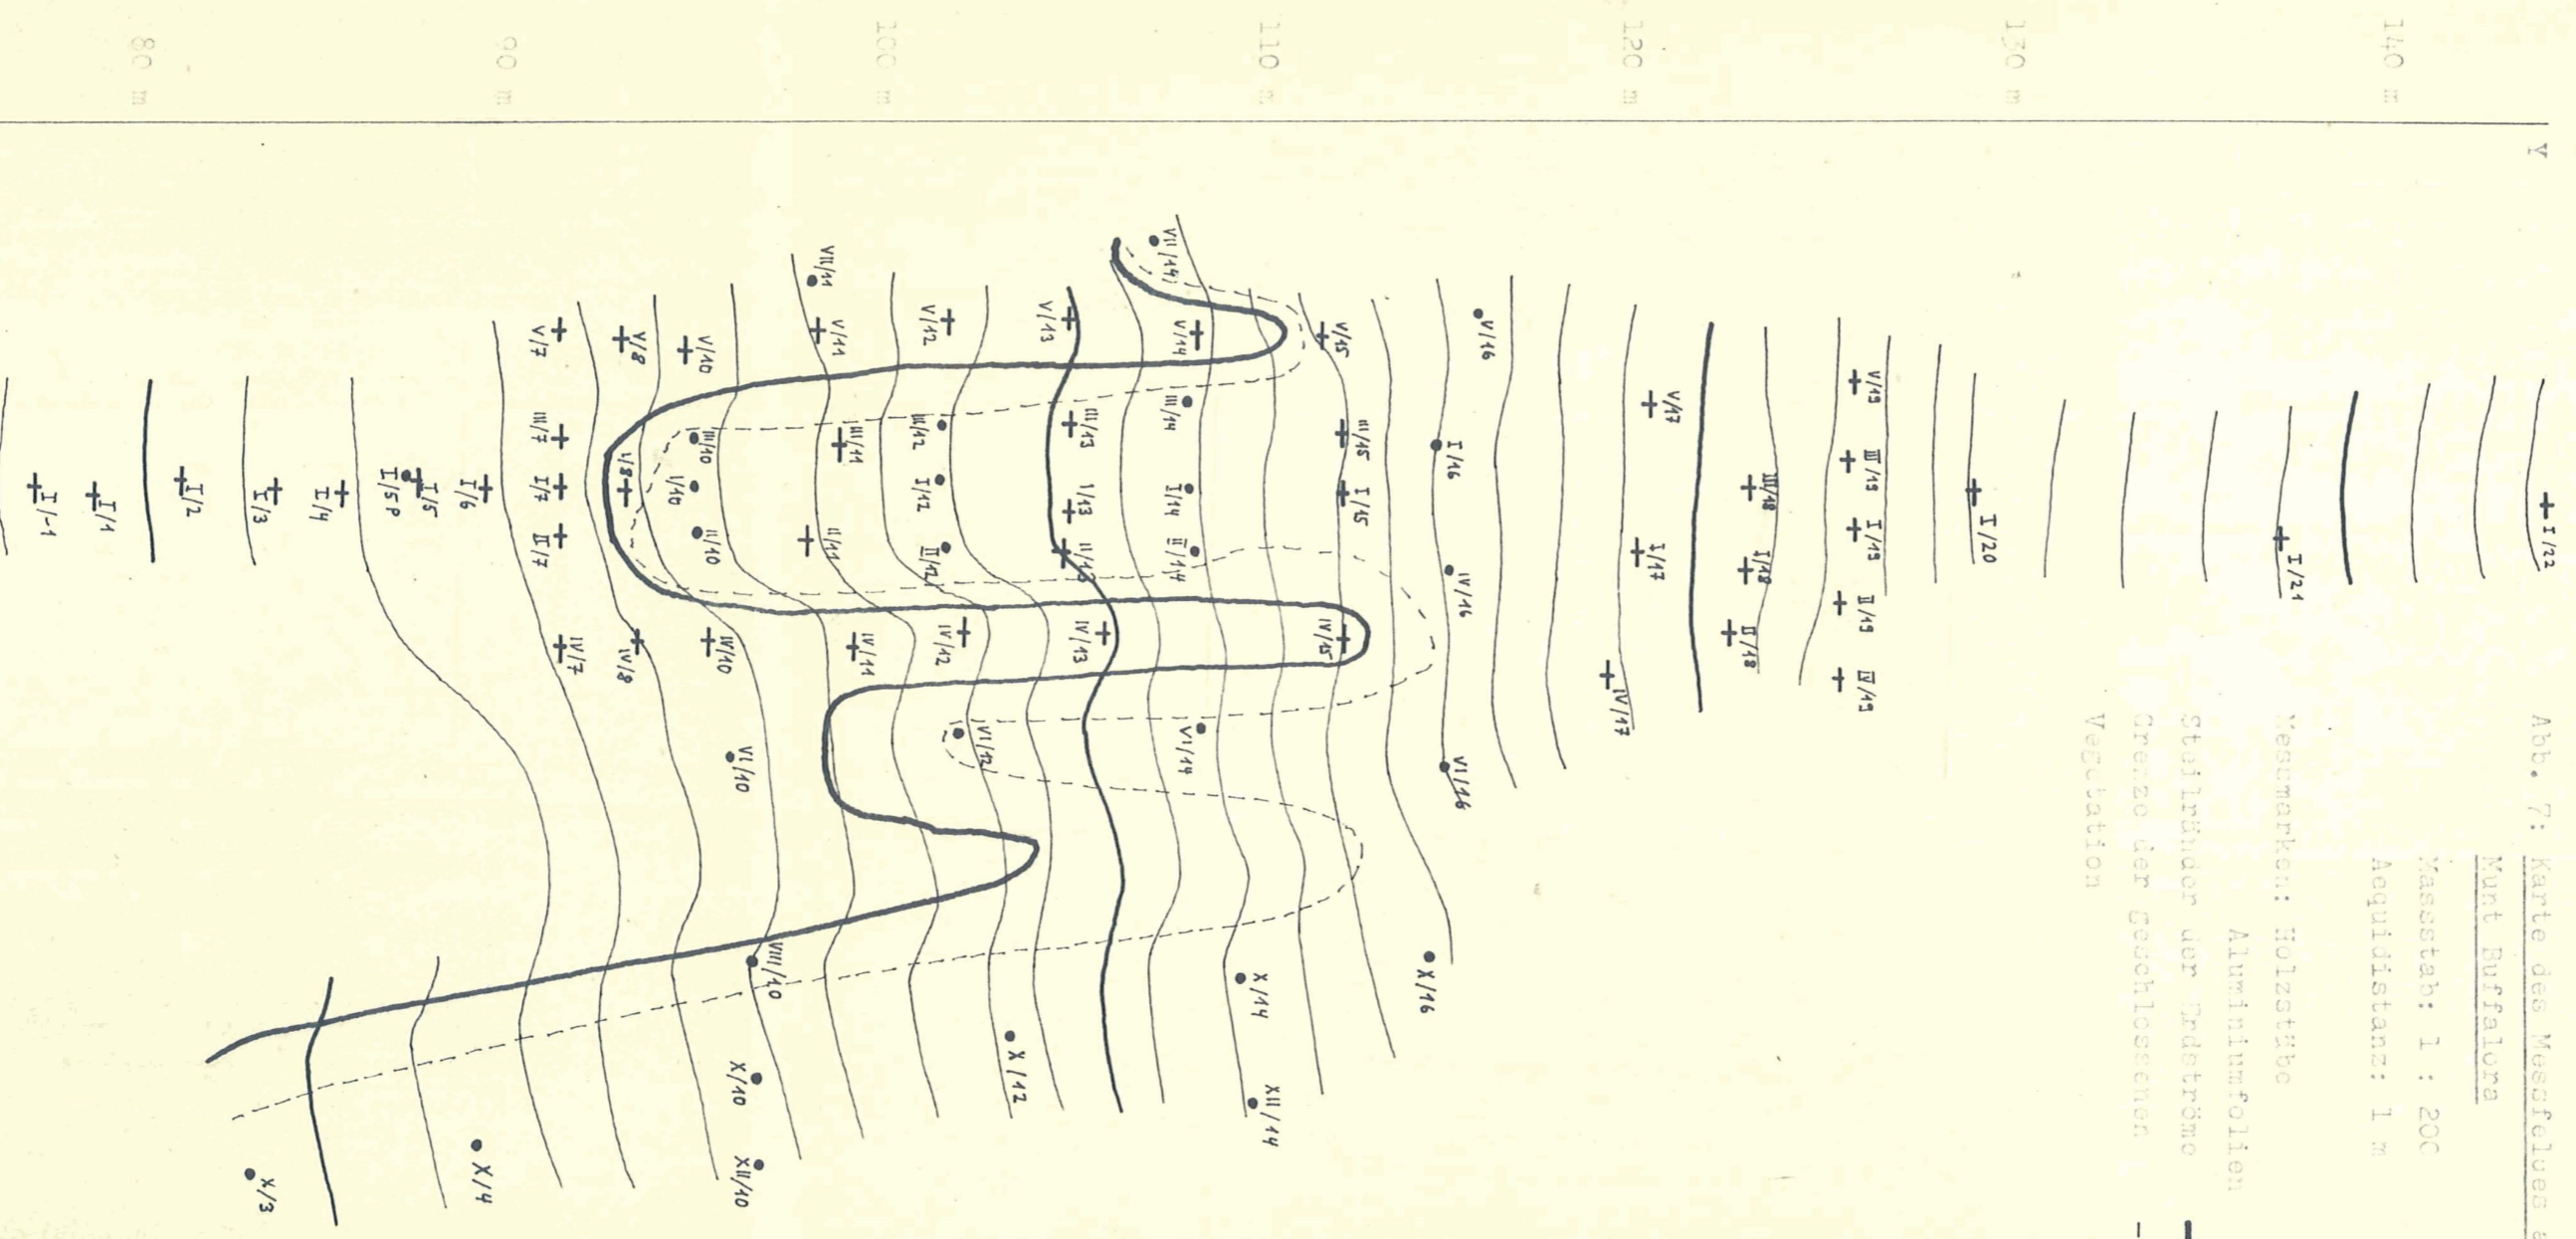 Abb. 7: Karte des Messfeldes a
Munt Buffalora
Massstab: 1 : 200
Aequidistanz: 1 m
Messmarken: Holzstäbe
Aluminiumfolien
Steilränder der Erdströme
Grenze der geschlossenen
Vegetation
Y
140 m
130 m
120 m
110 m
100 m
90 m
80 m
I/22
I/21
I/20
V/19
III/19
I/19
II/19
IV/19
III/18
I/18
II/18
V/17
I/17
IV/17
V/16
I/16
IV/16
VI/16
X/16
V/15
III/15
I/15
IV/15
VII/14
V/14
III/14
I/14
II/14
VI/14
X/14
XII/14
V/13
III/13
I/13
II/13
IV/13
V/12
III/12
I/12
II/12
IV/12
VI/12
X/12
VII/11
V/11
III/11
II/11
IV/11
V/10
III/10
I/10
II/10
IV/10
VI/10
VIII/10
X/10
XII/10
V/8
I/8
IV/8
V/7
III/7
I/7
II/7
IV/7
I/6
I/5
I/5P
I/4
X/4
I/3
X/3
I/2
I/1
I/-1